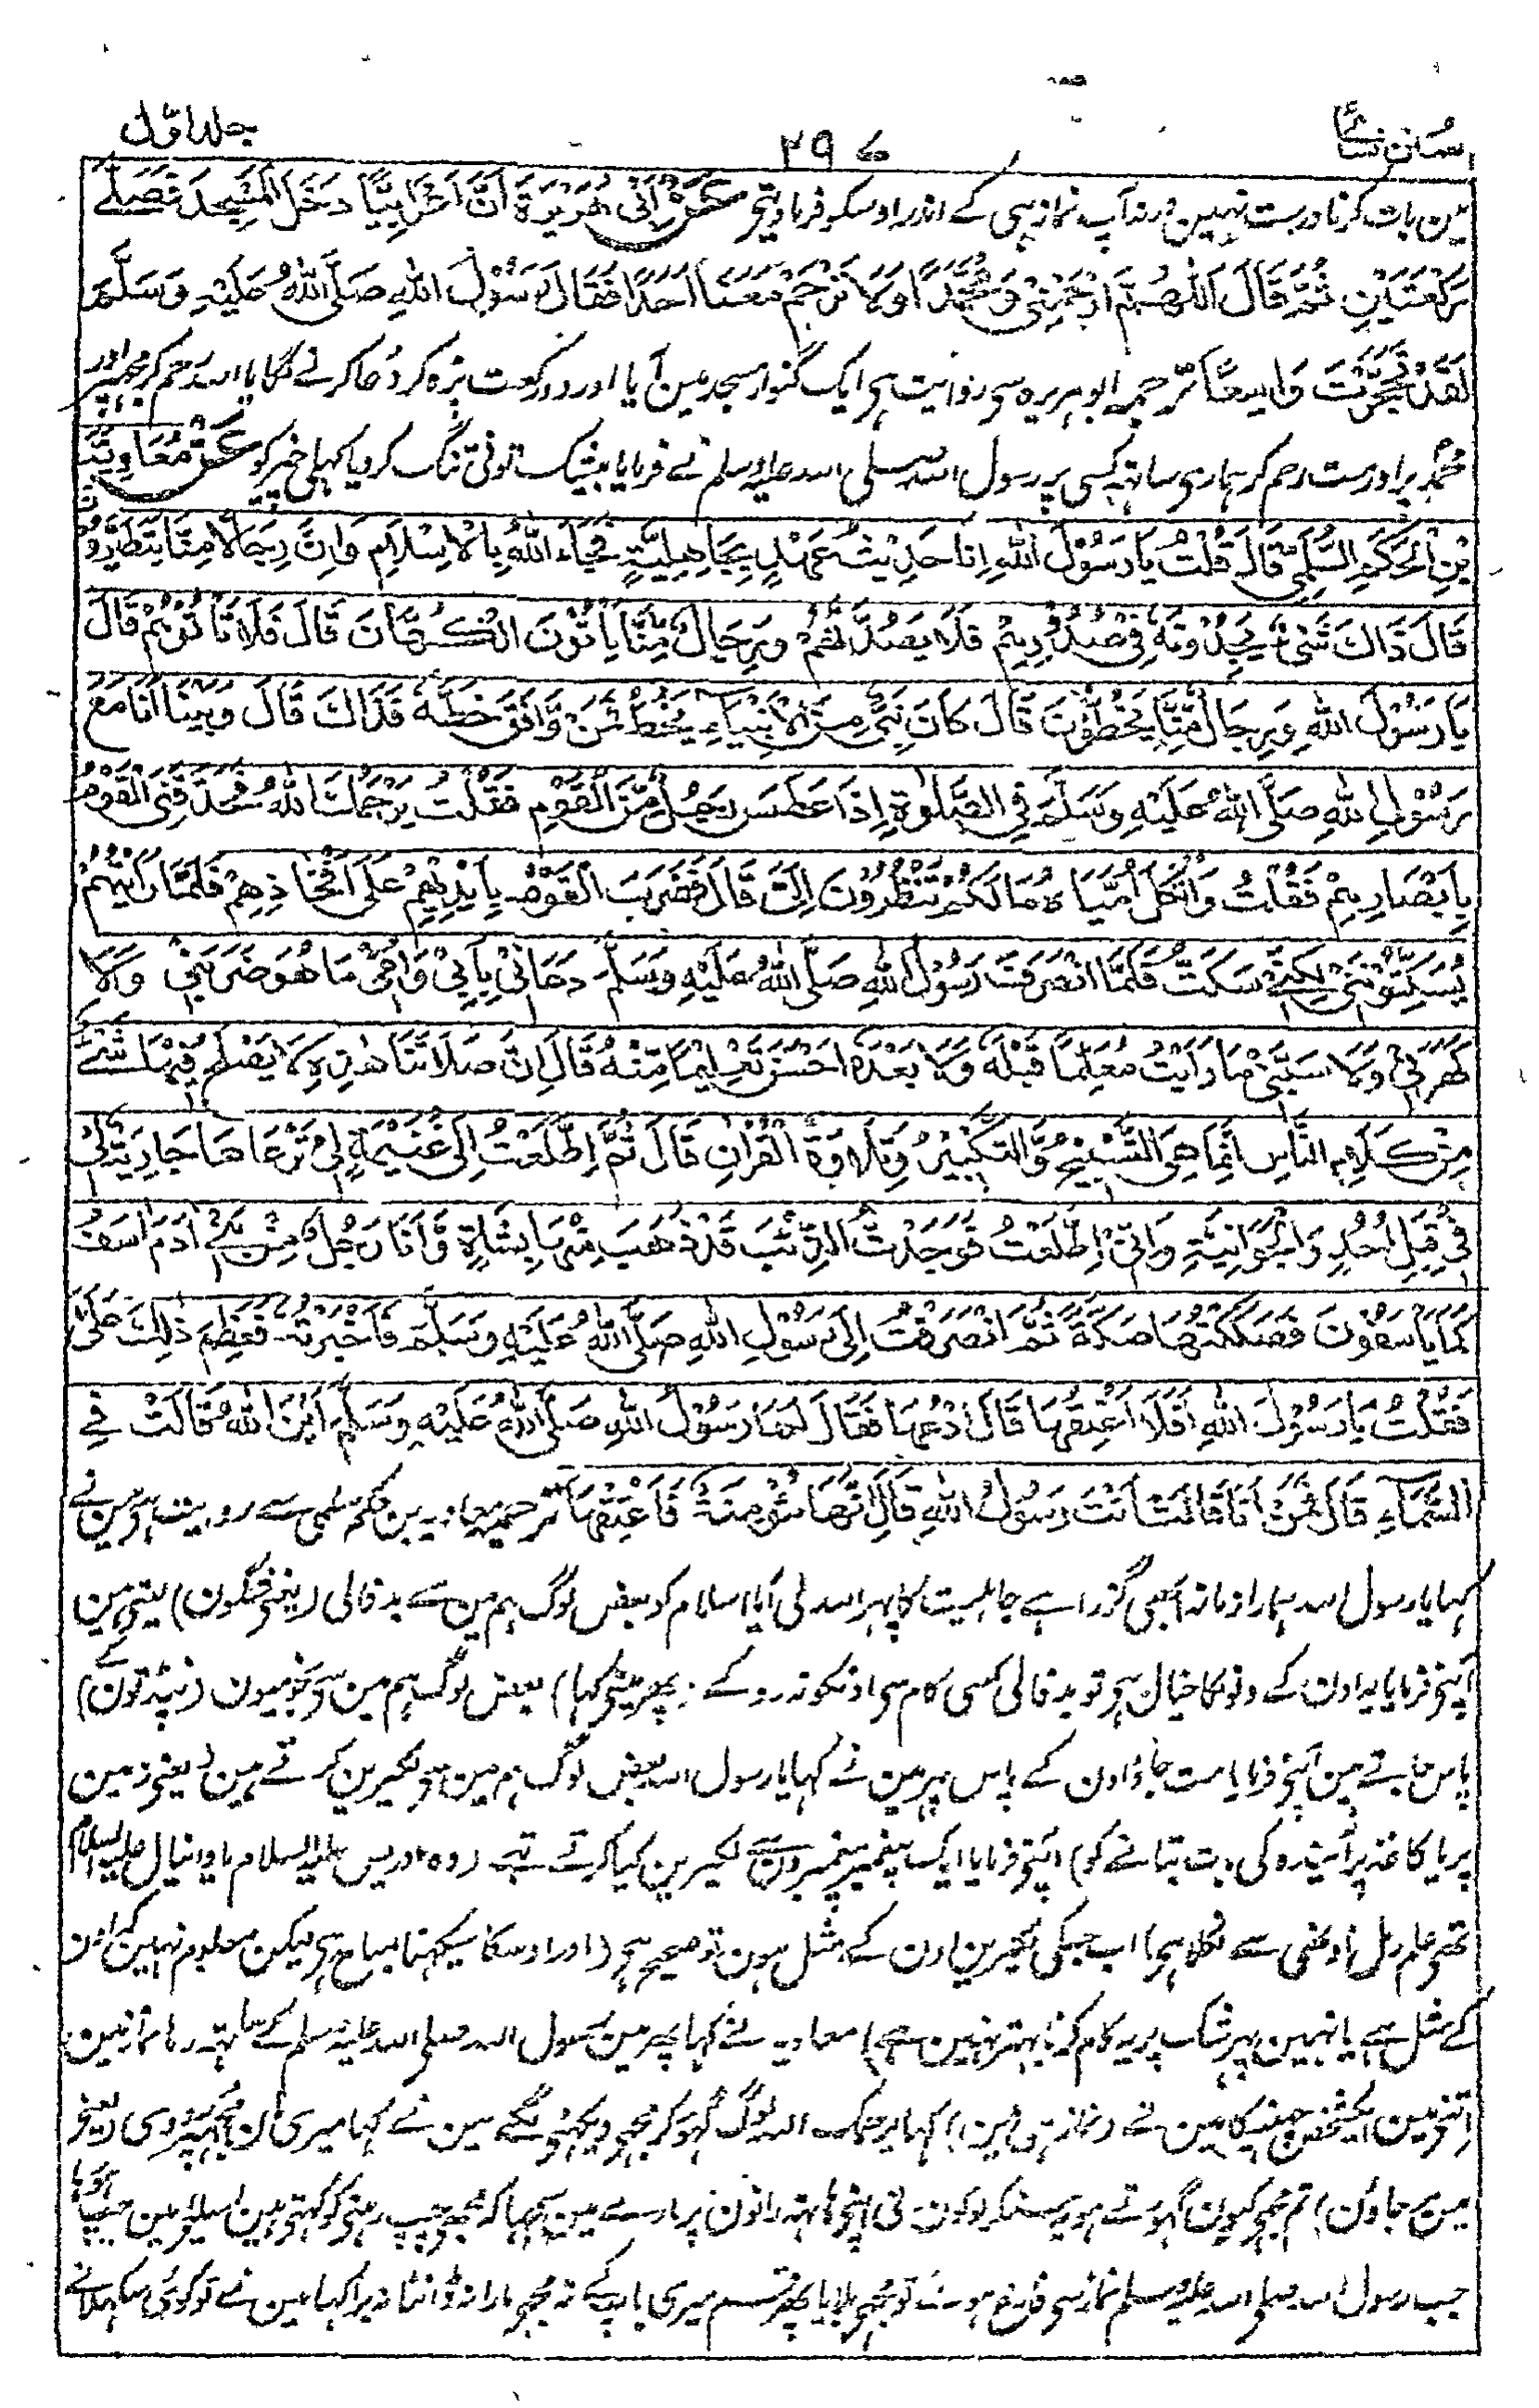 سُنن نسائی
۲۹۷
جلد اوّل
مین بات کرنا درست نہین ورنہ آپ نماز ہی کے اندر اوسکو فرما دیتے عَنْ اَبِیْ هُرَیْرَةَ اَنَّ اَعْرَابِیًّا دَخَلَ الْمَسْجِدَ فَصَلّٰے
رَکْعَتَیْنِ ثُمَّ قَالَ اَللّٰهُمَّ ارْحَمْنِیْ وَمُحَمَّدًا وَلَا تَرْحَمْ مَعَنَا اَحَدًا فَقَالَ رَسُوْلُ اللّٰهِ صَلَّی اللّٰهُ عَلَیْهِ وَسَلَّمَ
لَقَدْ تَحَجَّرْتَ وَاسِعًا ترجمہ ابو ہریرہ سے روایت ہی ایک گنوار مسجد مین آیا اور دو رکعت پڑہ کر دُعا کرنے لگا یا اللہ رحم کر مجھپر اور
محمدؐ پر اور مت رحم کر ہماری ساتہہ کسی پر رسول اللہ صلی اللہ علیہ وسلم نے فرمایا بیشک تونی تنگ کر دیا کہلی خیر کو عَنْ مُعَاوِیَةَ
بْنِ الْحَکَمِ السُّلَمِیِّ قَالَ قُلْتُ یَا رَسُوْلَ اللّٰهِ اِنَّا حَدِیْثُ عَهْدٍ بِجَاهِلِیَّةٍ فَجَاءَ اللّٰهُ بِالْاِسْلَامِ وَاِنَّ رِجَالًا مِنَّا یَتَطَیَّرُوْنَ
قَالَ ذَاكَ شَیْءٌ یَجِدُوْنَهٗ فِیْ صُدُوْرِهِمْ فَلَا یَصُدَّنَّهُمْ وَرِجَالٌ مِنَّا یَاْتُوْنَ الْکُهَّانَ قَالَ فَلَا تَاْتُوْهُمْ قَالَ
یَا رَسُوْلَ اللّٰهِ وَرِجَالٌ مِنَّا یَخُطُّوْنَ قَالَ کَانَ نَبِیٌّ مِنَ الْاَنْبِیَاءِ یَخُطُّ فَمَنْ وَافَقَ خَطُّهٗ فَذَاكَ قَالَ وَبَیْنَا اَنَا مَعَ
رَسُوْلِ اللّٰهِ صَلَّی اللّٰهُ عَلَیْهِ وَسَلَّمَ فِی الصَّلٰوةِ اِذَا عَطَسَ رَجُلٌ مِّنَ الْقَوْمِ فَقُلْتُ یَرْحَمُكَ اللّٰهُ فَحَدَّقَنِی الْقَوْمُ
بِاَبْصَارِهِمْ فَقُلْتُ وَاثُکْلَ اُمِّیَاهُ مَا لَکُمْ تَنْظُرُوْنَ اِلَیَّ قَالَ فَضَرَبَ الْقَوْمُ بِاَیْدِیْهِمْ عَلٰی اَفْخَاذِهِمْ فَلَمَّا رَاَیْتُهُمْ
یُسَکِّتُوْنَنِیْ لٰکِنِّیْ سَکَتُّ فَلَمَّا انْصَرَفَ رَسُوْلُ اللّٰهِ صَلَّی اللّٰهُ عَلَیْهِ وَسَلَّمَ دَعَانِیْ بِاَبِیْ وَاُمِّیْ مَا هُوَ ضَرَبَنِیْ وَلَا
کَهَرَنِیْ وَلَا سَبَّنِیْ مَا رَاَیْتُ مُعَلِّمًا قَبْلَهٗ وَلَا بَعْدَهٗ اَحْسَنَ تَعْلِیْمًا مِّنْهُ قَالَ اِنَّ صَلَاتَنَا هٰذِهٖ لَا یَصْلُحُ فِیْهَا شَیْءٌ
مِنْ کَلَامِ النَّاسِ اِنَّمَا هِیَ التَّسْبِیْحُ وَالتَّکْبِیْرُ وَتِلَاوَةُ الْقُرْاٰنِ قَالَ ثُمَّ اِطَّلَعْتُ اِلٰی غُنَیْمَةٍ لِیْ تَرْعَاهَا جَارِیَةٌ لِیْ
فِیْ قِبَلِ اُحُدٍ وَالْجَوَّانِیَّةِ وَاِنِّیْ اِطَّلَعْتُ فَوَجَدْتُ الذِّئْبَ قَدْ ذَهَبَ مِنْهَا بِشَاةٍ وَاَنَا رَجُلٌ مِنْ بَنِیْ اٰدَمَ اٰسَفُ
کَمَا یَاْسَفُوْنَ فَصَکَکْتُهَا صَکَّةً ثُمَّ انْصَرَفْتُ اِلٰی رَسُوْلِ اللّٰهِ صَلَّی اللّٰهُ عَلَیْهِ وَسَلَّمَ فَاَخْبَرْتُهٗ فَعَظَّمَ ذٰلِكَ عَلَیَّ
فَقُلْتُ یَا رَسُوْلَ اللّٰهِ اَفَلَا اُعْتِقُهَا قَالَ ادْعُهَا فَقَالَ لَهَا رَسُوْلُ اللّٰهِ صَلَّی اللّٰهُ عَلَیْهِ وَسَلَّمَ اَیْنَ اللّٰهُ قَالَتْ فِی
السَّمَآءِ قَالَ فَمَنْ اَنَا قَالَتْ اَنْتَ رَسُوْلُ اللّٰهِ قَالَ اِنَّهَا مُؤْمِنَةٌ فَاَعْتِقْهَا ترجمہ معاویہ بن حکم سلمی سے روایت ہی مین نے
کہا یا رسول اللہ ہمارا زمانہ ابھی گزرا ہے جاہلیت کا پہر اللہ لی آیا اسلام کو بعض لوگ ہم مین سے بدفالی (یعنی شگون) لیتی ہین
آپنی فرمایا یہ اون کے دلونکا خیال ہی تو بدفالی کسی کام سی اونکو نہ روکے (پھر مینی کہا) بعض لوگ ہم مین سی نجومیون (پنڈتون) کے
پاس جاتے ہین آپنی فرمایا مت جاؤ اون کے پاس پہر مین نے کہا یا رسول اللہ بعض لوگ ہم مین سی لکیرین کرتے ہین (یعنی زمین
پر یا کاغذ پر آیندہ کی بات بتانے کو) آپنی فرمایا ایک پیغمبر پیغمبرون سے لکیرین کیا کرتے تہے (وہ ادریس علیہ السلام یا دانیال علیہ السلام
تھی علم رمل اونہی سے نکلا ہی) اب جسکی لکیرین اون کے مثل ہون تو صحیح ہی (اور اوسکا سیکہنا مباح ہی لیکن معلوم نہین کہ اون
کے مثل ہے یا نہین پہر شک پر یہ کام کرنا بہتر نہین ہے) معاویہ نے کہا پھر مین رسول اللہ صلی اللہ علیہ وسلم کے ساتہہ رہا نماز مین
اتنی مین ایک شخص چہینکا مین نے (نماز ہی مین) کہا یرحمک اللہ لوگ گہور کر مجہی دیکہنی لگے مین نے کہا میری مان مجہپر روی (یعنی
مین مر جاؤن) تم مجہی کیون گہورتے ہو یہ سنکر لوگون نی اپنی ہاتہہ رانون پر مارے مین سمجہا کہ مجہی چپ رہنی کو کہتی ہین اسلیی مین چپ ہو رہا
جب رسول اللہ صلی اللہ علیہ وسلم نماز سی فارغ ہوئے تو مجہی بلایا پھر قسم میری باپ کے نہ مجہی مارا نہ ڈانٹا نہ برا کہا مین نے تو کوئی سکہلانے